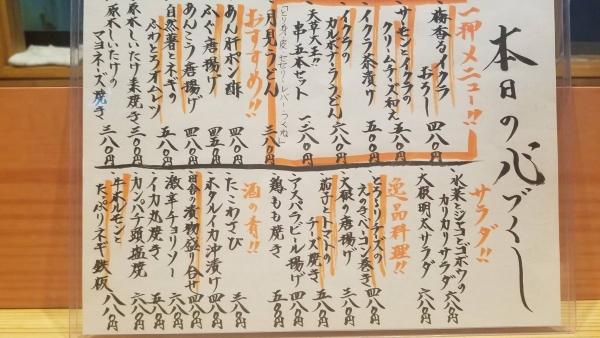 本日の心づくし
一押メニュー!!
・梅香るイクラおろし 四八〇円
・サーモンとイクラのクリームチーズ和え 五八〇円
・イクラ茶漬け 五〇〇円
・イクラのカルボナーラうどん 六八〇円
・大草大王!!串五本セット 一三八〇円
(とり身・皮・せせり・レバー・つくね)
・月見うどん 三八〇円
おすすめ!!
・あん肝ポン酢 四八〇円
・ふぐ唐揚げ 四五〇円
・あんこう唐揚げ 四八〇円
・自然薯とネギのふわとろオムレツ 五八〇円
・原木しいたけ素焼き 三五〇円
・原木しいたけのマヨネーズ焼き 三八〇円
サラダ!!
・水菜とジャコとゴボウのカリカリサラダ 六八〇円
・大根明太サラダ 六八〇円
逸品料理!!
・とろ〜りチーズのえのきベーコン巻き 四八〇円
・大根の唐揚げ 三八〇円
・茄子とトマトのチーズ焼き 五八〇円
・アスパラビール揚げ 四八〇円
・鶏もも焼き 五〇〇円
酒の肴!!
・たこわさび 三八〇円
・ホタルイカ沖漬け 四八〇円
・田舎の漬物盛り合せ 四八〇円
・激辛チョリソー 六八〇円
・イカ丸焼き 五八〇円
・カンパチ頭塩焼 六八〇円
・牛ホルモンとたっぷりネギ鉄板 八八〇円